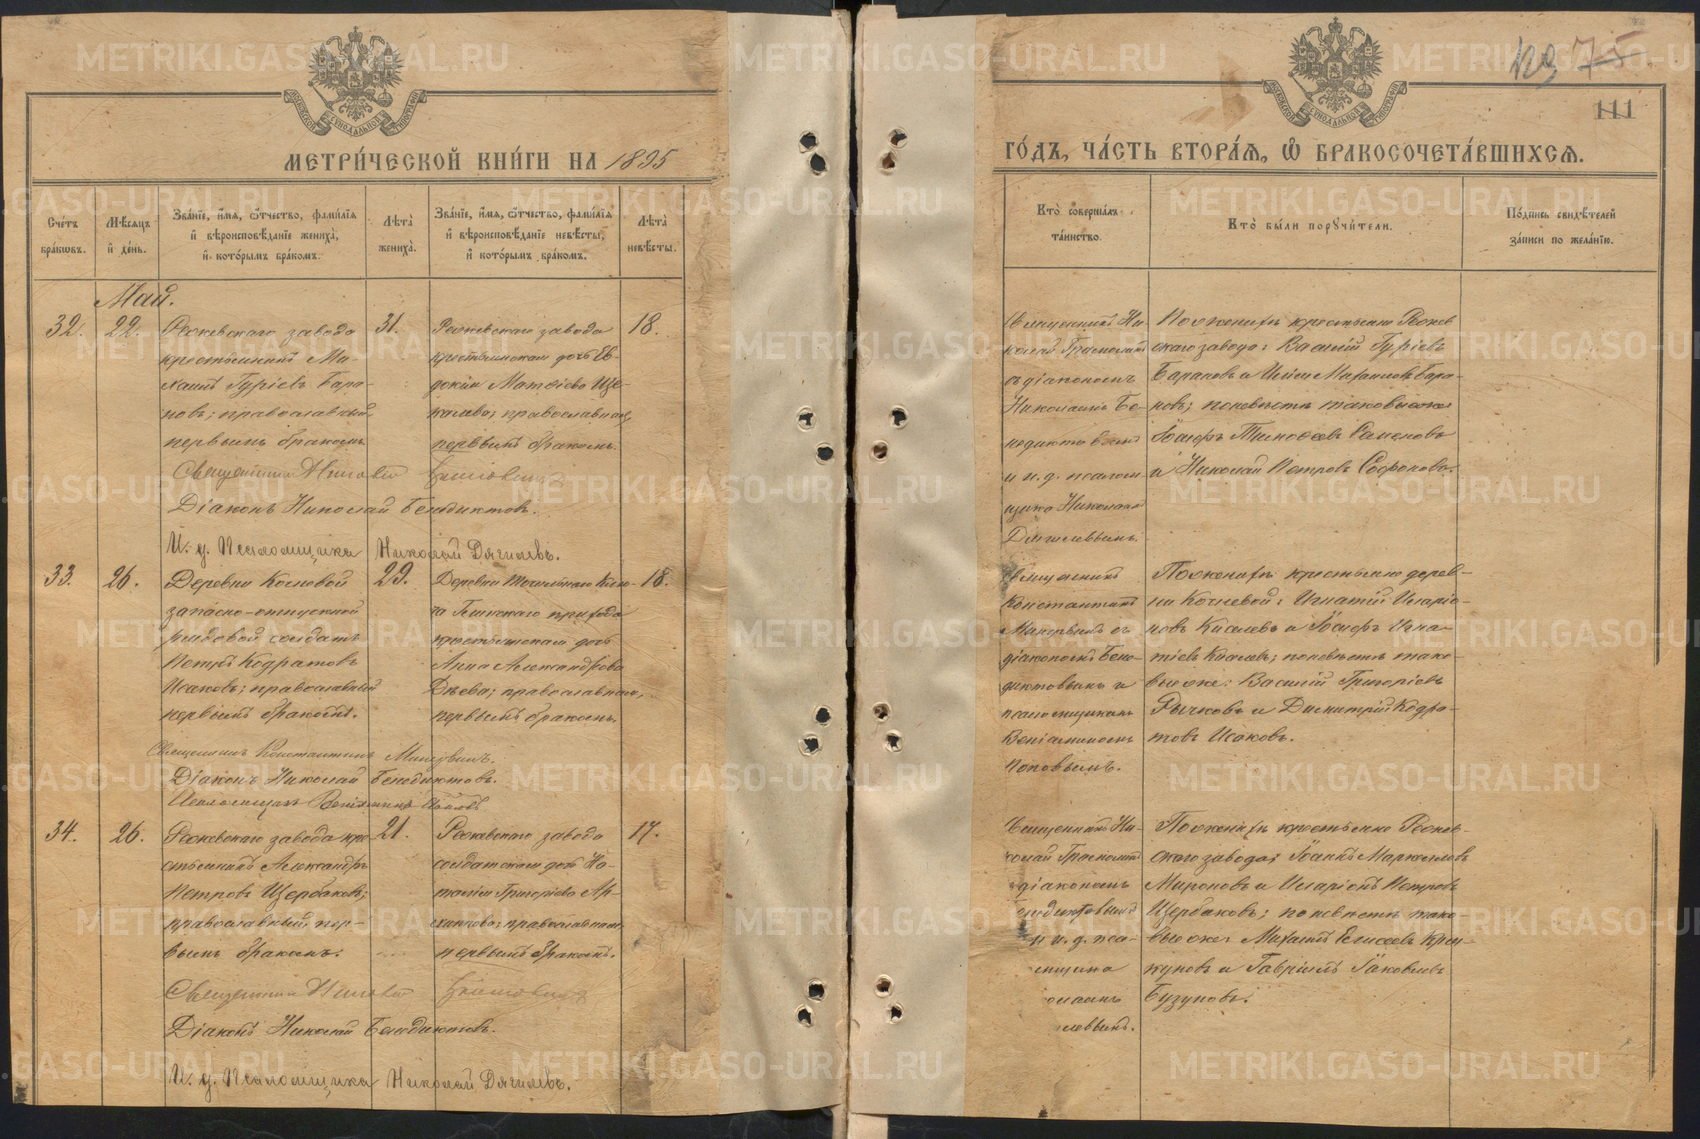 МЕТРИ́ЧЕСКОЙ КНИ́ГИ НА 1895
Сче́тъ бра́кѡвъ.
Мѣ́сяцъ и҆ де́нь.
Зва́нїе, и҆́мѧ, ѻ҆́тчество, фами́лїѧ и҆ вѣроисповѣ́данїе жениха̀, и҆ кото́рымъ бра́комъ.
Лѣ́та жениха̀.
Зва́нїе, и҆́мѧ, ѻ҆́тчество, фами́лїѧ и҆ вѣроисповѣ́данїе невѣ́сты, и҆ кото́рымъ бра́комъ.
Лѣ́та невѣ́сты.
Май.
32.
22.
Режевскаго завода
крестьянинъ Ми-
хаилъ Гурiевъ Бара-
новъ; православный,
первымъ бракомъ
31.
Режевскаго завода
крестьянская дочь Ев-
докiя Матѳiева Ще-
православная,
первымъ бракомъ.
18.
Священникъ Николай
Дiаконъ Николай Бенедиктовъ.
И. д. Псаломщика Николай Дягилевъ.
33.
26.
Деревни Кочневой
запасно-отпускной
рядовой солдатъ
Петръ Кодратовъ
Исаковъ; православный
первымъ бракомъ.
29.
Деревни
прихода
крестьянская дочь
Анна Александрова
Дѣева; православная,
первымъ бракомъ.
18.
Священникъ Константинъ
Дiаконъ Николай Бенедиктовъ.
Псаломщикъ Венiаминъ Поповъ
34.
26.
Режевскаго завода кре-
стьянинъ Александръ
Петровъ Щербаковъ;
православный пер-
вымъ бракомъ.
21.
Режевскаго завода
солдатская дочь На-
талiя Григорiева Ар-
православная
первымъ бракомъ.
17.
Священникъ Николай
Дiаконъ Николай Бенедиктовъ.
И. д. Псаломщика Николай Дягилевъ.
129 75
111
ГО́ДЪ, ЧА́СТЬ ВТОРА́Ѧ, Ѽ БРАКОСОЧЕТА́ВШИХСѦ.
Кто̀ соверша́лъ та́инство.
Кто̀ бы́ли порꙋчи́тели.
По́дпись свидѣ́телей за́писи по жела́нїю.
Священникъ Ни-
колай
съ дiакономъ
Николаемъ Бе-
недиктовымъ
и и. д. псалом-
щика Николаемъ
Дягилевымъ.
По женихѣ крестьяне Режев-
скаго завода: Василiй Гурiевъ
Барановъ и Михаиловъ Бара-
новъ; по невѣстѣ таковые же
Iосифъ Тимоѳеевъ
и Николай Петровъ
Священникъ
Константинъ
съ
дiакономъ Бене-
диктовымъ и
псаломщикомъ
Венiаминомъ
Поповымъ.
По женихѣ крестьяне дерев-
ни Кочневой: Игнатiй Иларiо-
новъ Киселевъ и Iосифъ Игна-
тiевъ Киселевъ; по невѣстѣ тако-
вые же: Василiй Григорiевъ
Рычковъ и Димитрiй Кодра-
товъ Исаковъ.
Священникъ Ни-
колай
дiакономъ
Бенедиктовымъ
и и. д. пса-
омщика
олаемъ
левымъ.
По женихѣ крестьяне Режев-
скаго завода: Iоаннъ Маркелловъ
Мироновъ и Иларiонъ Петровъ
Щербаковъ; по невѣстѣ тако
вые же: Михаилъ Елисеевъ
и Гаврiилъ Iаковлевъ
Бузуновъ.
METRIKI.GASO-URAL.RU